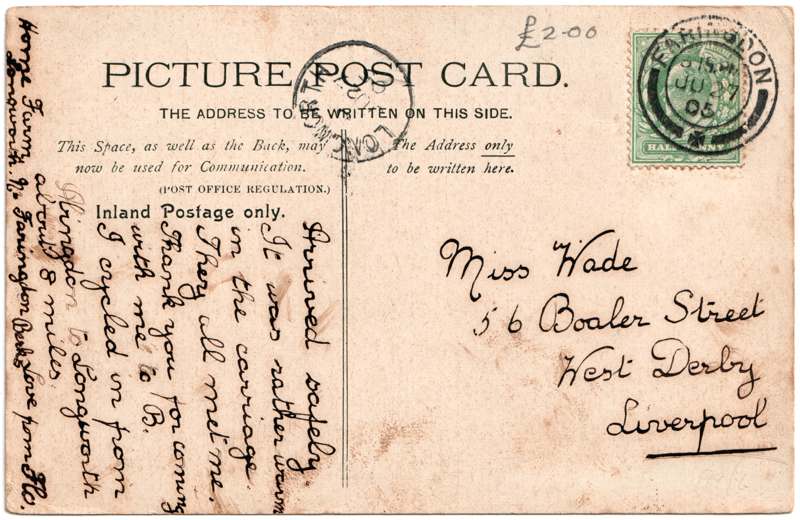 £2-00
PICTURE POST CARD.
THE ADDRESS TO BE WRITTEN ON THIS SIDE.
This Space, as well as the Back, may
now be used for Communication.
(POST OFFICE REGULATION.)
The Address only
to be written here.
Inland Postage only.
LONGWORTH
FARINGDON
JU 27
05
HALFPENNY
Miss Wade
56 Boaler Street
West Derby
Liverpool
Arrived safely.
It was rather warm
in the carriage.
They all met me.
Thank you for coming
with me to B.
I cycled in from
Abingdon to Longworth
about 8 miles
Love from Flo.
Home Farm,
Longworth. Nr Faringdon Berks